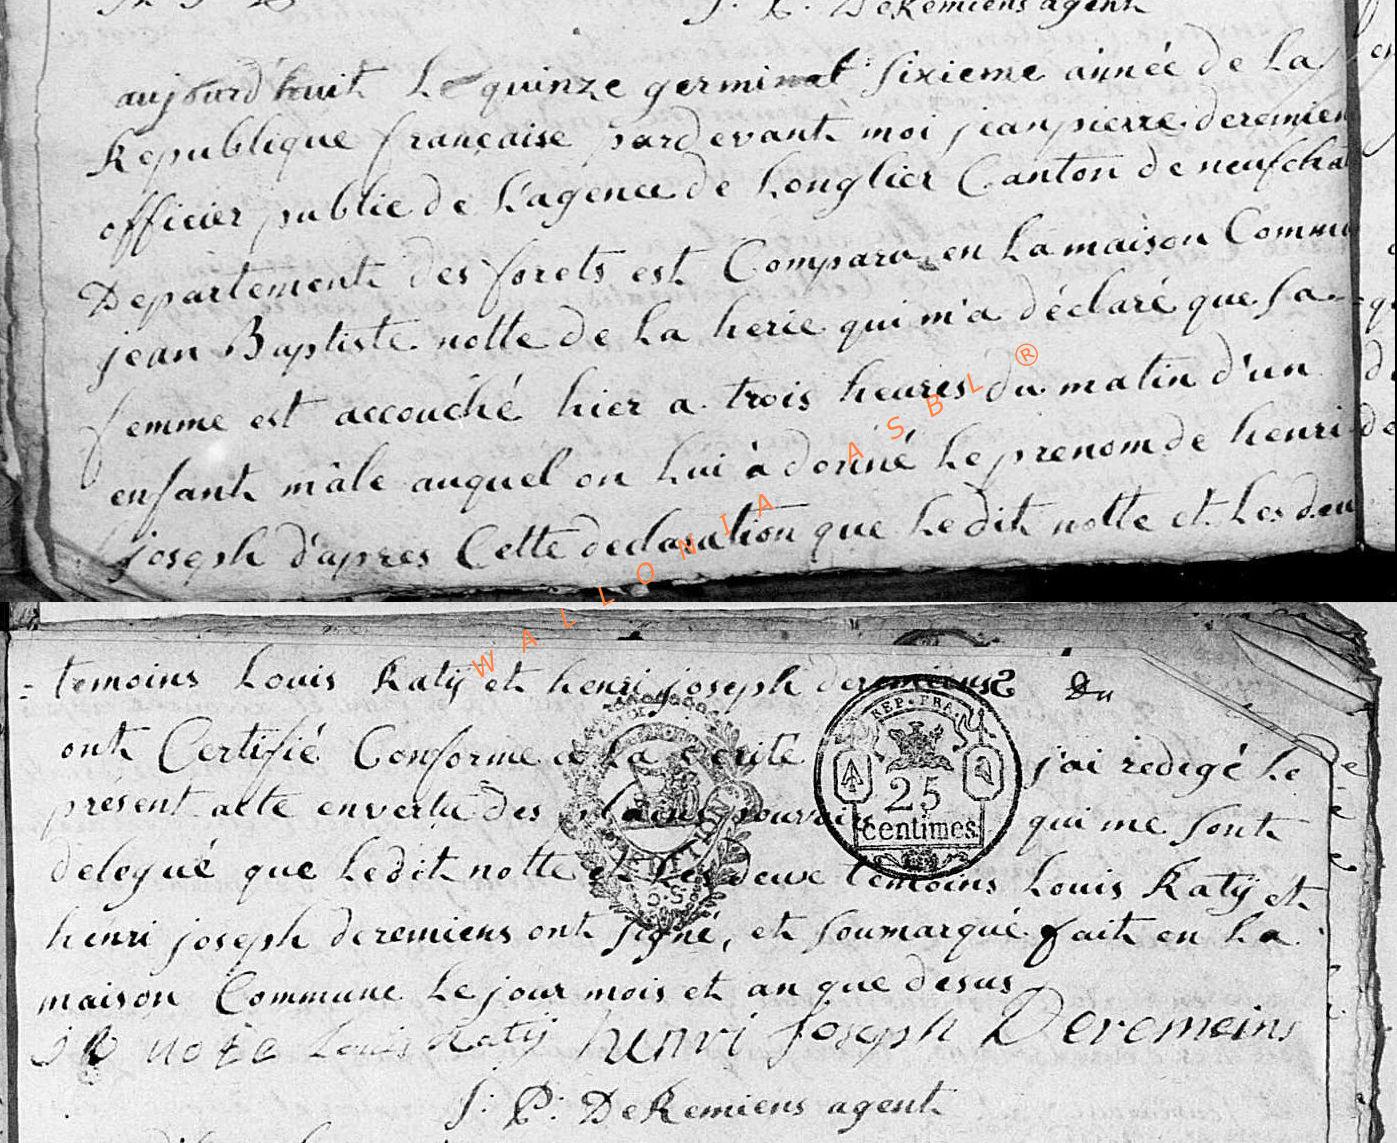 J. P. DeRemiens agent
aujourd'huit Le quinze germinal sixieme année de La
Republique française pardevant moi jeanpierre deremien
officier public de L'agence de Longlier Canton de neufcha
Departement des forets est Comparu en La maison Commu
jean Baptiste notte de La herie qui m'a déclaré que sa
femme est accouché hier a trois heures du matin d'un
enfant mâle auquel on Lui à donné Le prenom de henri
joseph d'apres Cette declaration que Ledit notte et Les deu
temoins Louis Katÿ et henri joseph deremiens Du
ont Certifié Conforme a La verité j'ai redigé Le
present acte envertu des pleins pouvoirs qui me sont
delegué que Ledit notte et Les deux temoins Louis Katÿ et
henri joseph deremiens ont signé, et soumarqué fait en La
maison Commune Le jour mois et an que desus
J B note Louis Katÿ henri Joseph Deremeins
J: P: DeRemiens agent
REP. FRA.
25
centimes
WALLONIA ASBL ®